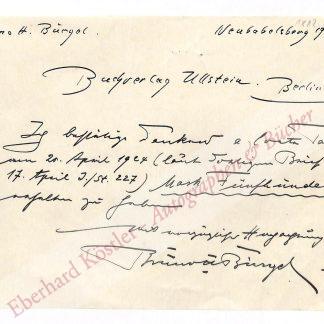 H. Bürgel.
Neubabelsberg
Buchverlag Ullstein. Berlin
Ich bestätige dankend
am 20. April 1924 (laut Brief
17. April J./St. 227) Mark Fünfhunder
erhalten zu haben
Bruno H Bürgel
Eberhard Köstler Autographen & Bücher